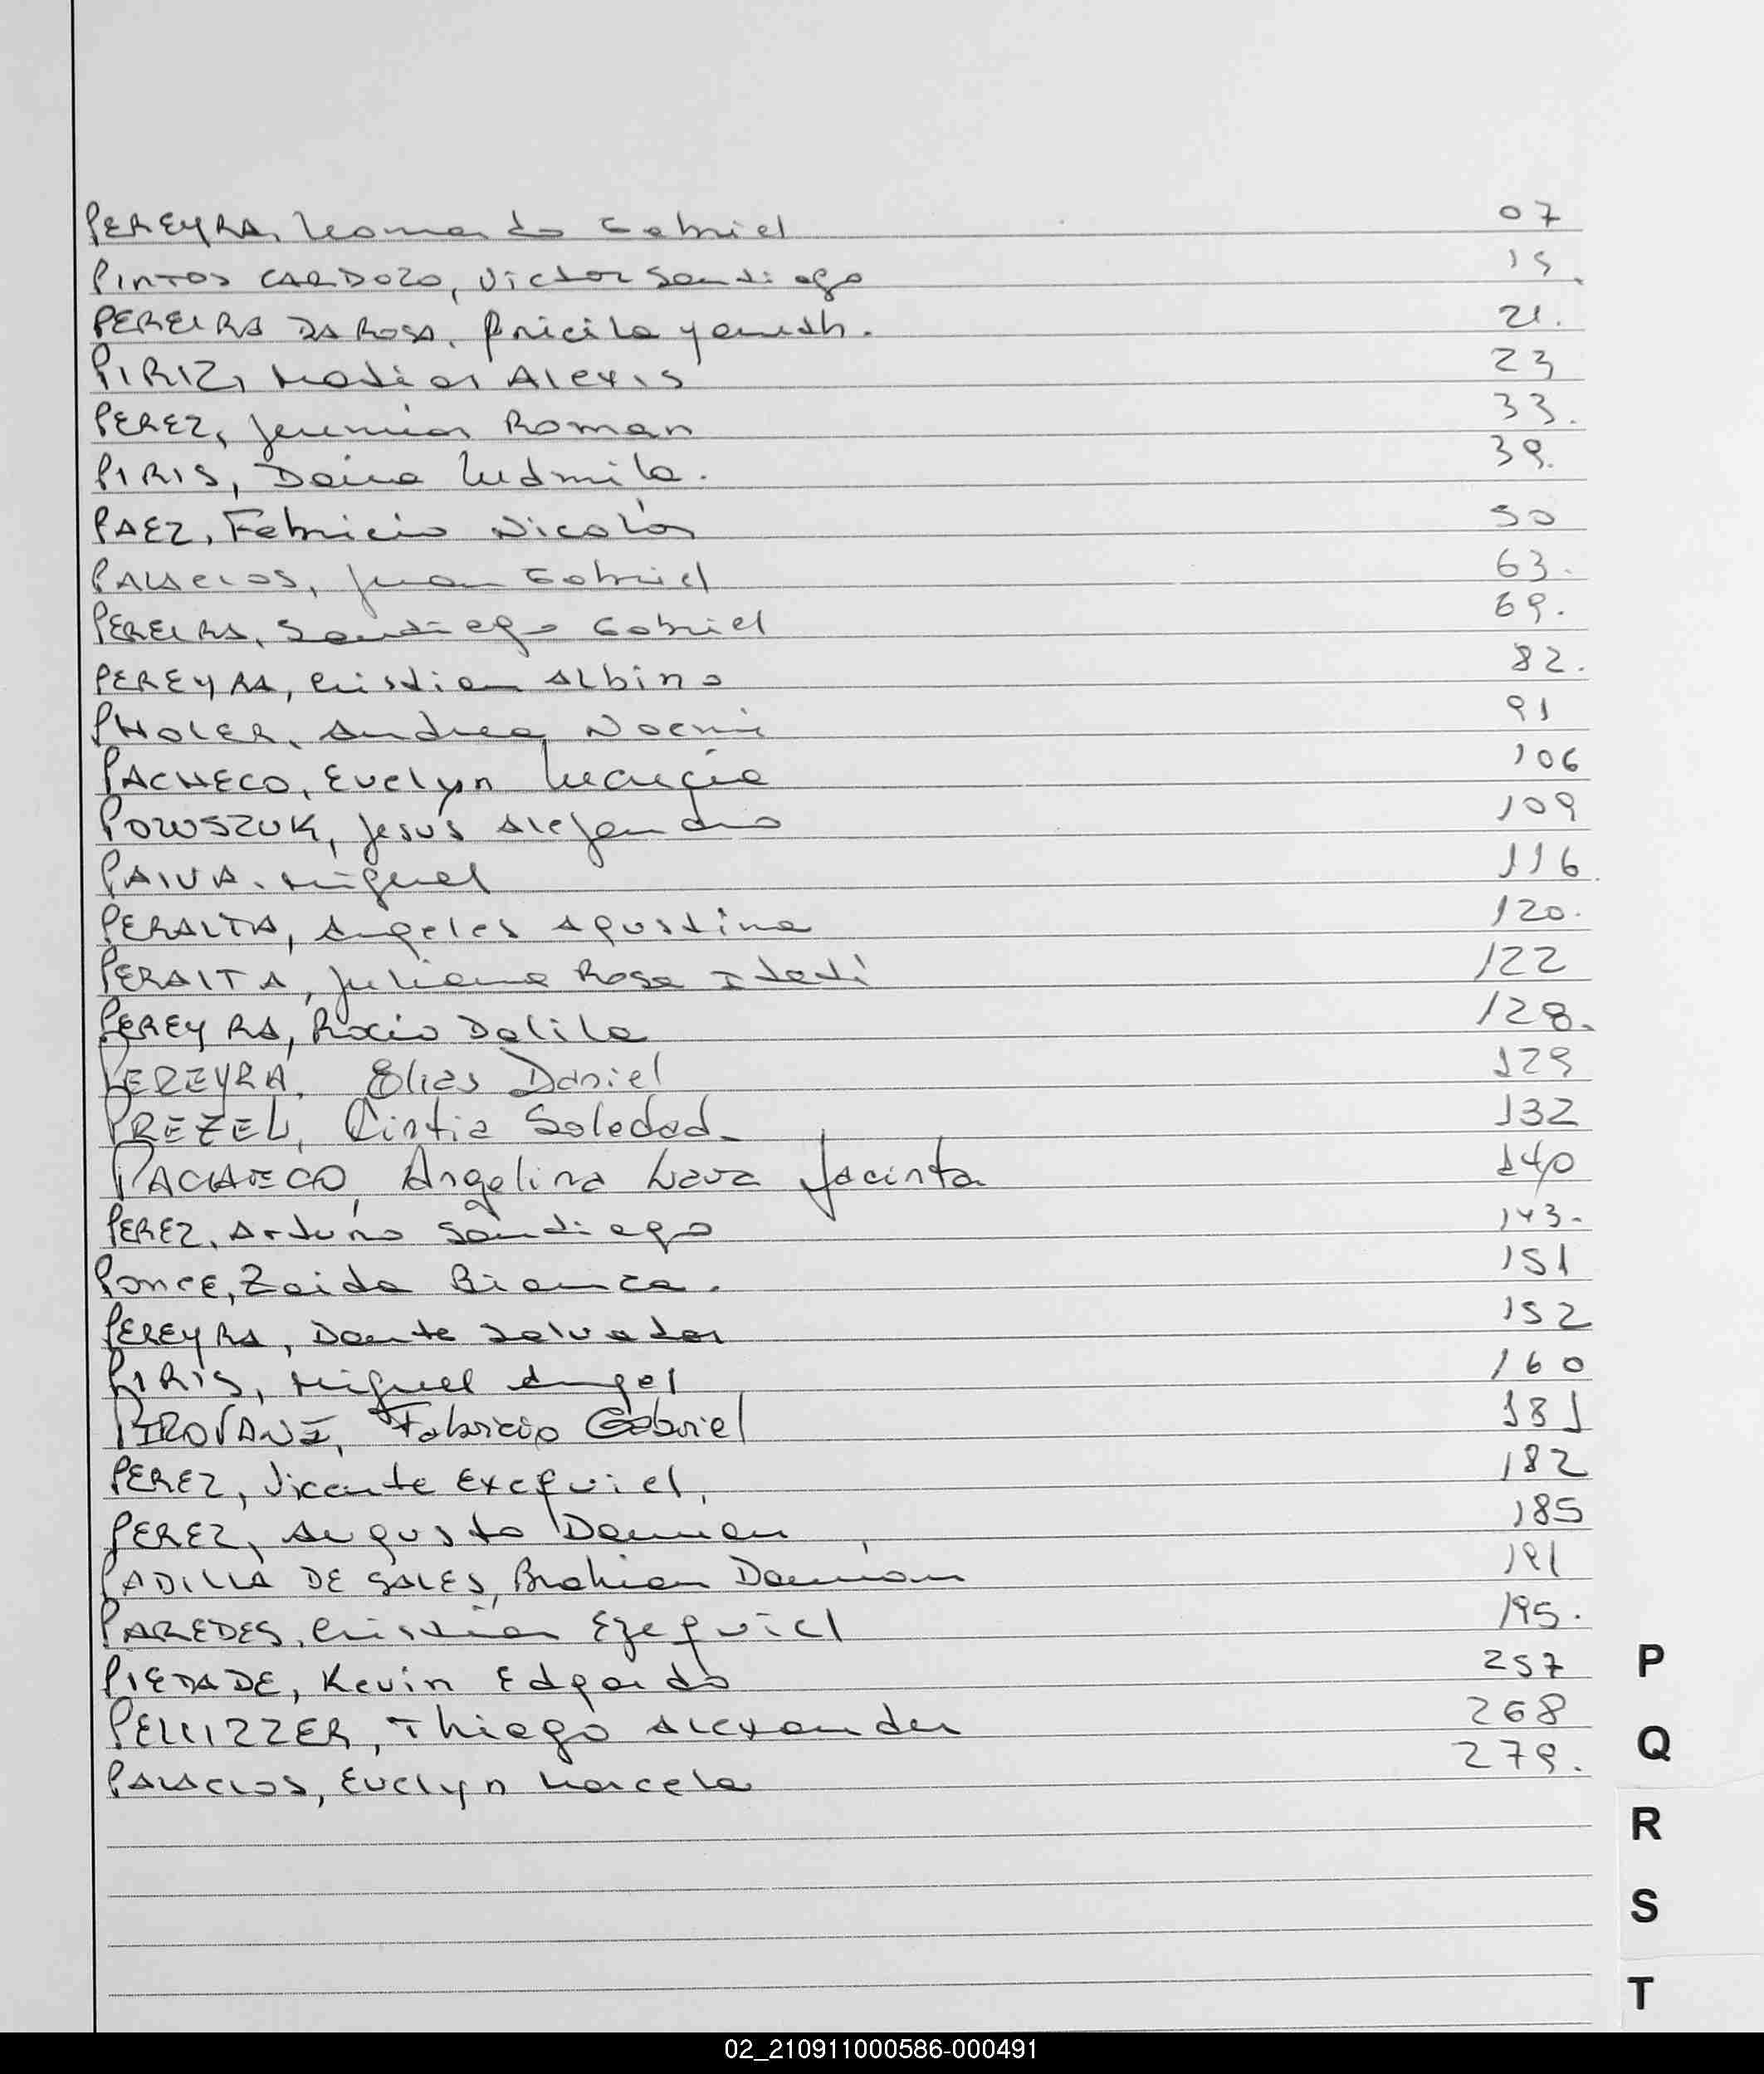 PEREYRA, Leonardo Gabriel 07
PINTOS CARDOZO, Victor Santiago 15.
PEREIRA DA ROSA, Pricila Yaneth. 21.
PIRIZ, Matias Alexis 23
PEREZ, Jeremias Roman 33.
PIRIS, Daina Ludmila. 39.
PAEZ, Fabricio Nicolás 50
PALACIOS, Juan Gabriel 63.
PEREIRA, Santiago Gabriel 69.
PEREYRA, Cristian Albino 82.
PHOLER, Andrea Noemi 91
PACHECO, Evelyn 106
POWSZUK, Jesús Alejandro 109
PAIVA, Miguel 116.
PERALTA, Angeles Agustina 120.
PERALTA, Juliana Rosa Itatí 122
PEREYRA, Rocio Dalila 128.
PEREYRA, Elias Daniel 129
PREZEL, Cintia Soledad 132
PACHECO, Angelina Lara Jacinta 140
PEREZ, Arturo Santiago 143.
PONCE, Zaida Bianca. 151
PEREYRA, Dante Salvador 152
PIRIS, Miguel Angel 160
PIROVANI, Fabricio Gabriel 181
PEREZ, Vicente Exequiel, 182
PEREZ, Augusto Damian 185
PADILLA DE GALES, Brahian Damián 191
PAREDES, Cristian Ezequiel 195.
PIEDADE, Kevin Edgardo 257
PELLIZZER, Thiago Alexander 268
PALACIOS, Evelyn Marcela 279.
P
Q
R
S
T
02_210911000586-000491